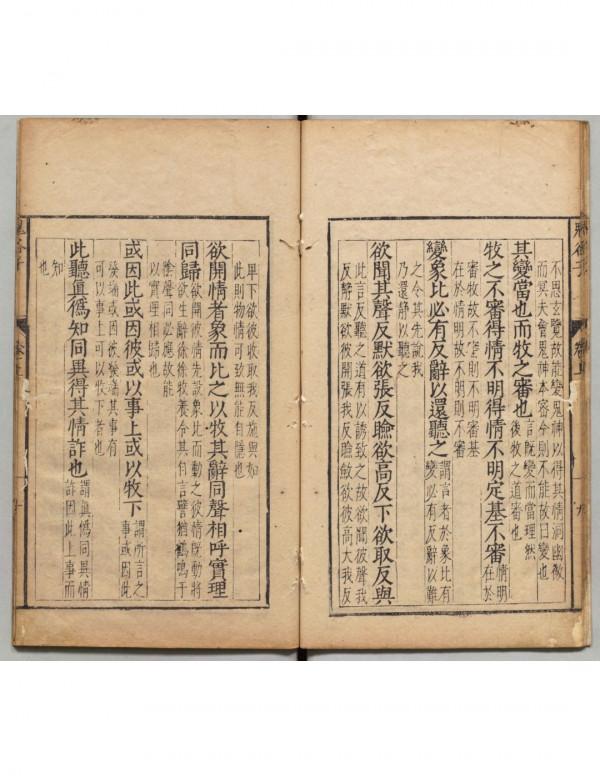 不思玄覽故能變鬼神以得其情洞幽微
而冥夫會鬼神本密今則不能故曰變也
其變當也而牧之審也言既變而當理然
後牧之道審也
牧之不審得情不明得情不明定基不審情明
在於
審牧故不審則不審基
在於情明故不明則不審
變象比必有反辭以還聽之謂言者於象比有
變必有反辭以難
之令其先說我
乃還靜以聽之
欲聞其聲反默欲張反瞼欲高反下欲取反與
此言反聽之道有以誘致之故欲聞彼聲我
反靜默欲彼開張我反瞼斂欲彼高大我反
卑下欲彼收取我反施與如
此則物情可致無能自隱也
欲開情者象而比之以牧其辭同聲相呼實理
同歸欲開彼情先設象比而動之彼情既動將
欲生辭徐徐牧養令其自言譬猶鶴鳴于
陰聲同必應故能
以實理相歸也
或因此或因彼或以事上或以牧下謂所言之
事或因此
發端或因彼發端其事有
可以事上可以牧下者也
此聽真偽知同異得其情詐也謂真偽同異情
詐因此上事而
知
也